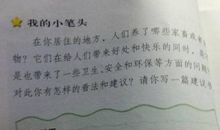 我的小笔头
在你居住的地方，人们养了哪些家畜或
物？它们在给人们带来好处和快乐的同时，是
是也带来了一些卫生、安全和环保等方面的问题？
对此你有怎样的看法和建议？请你写一篇建议